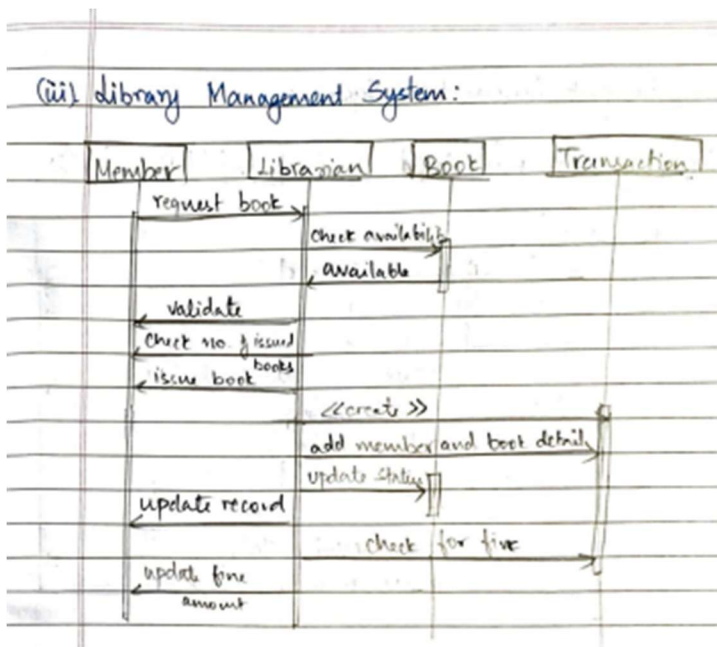 (iii) Library Management System:
Member Librarian Book Transaction
request book
check availability
available
validate
check no. of issued
books
issue book
<<create>>
add member and book detail
update status
update record
check for fine
update fine
amount